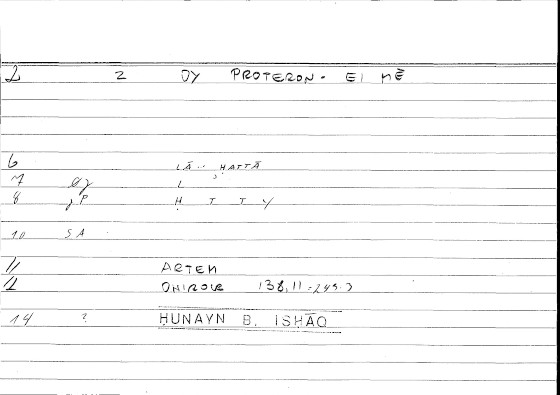 2 2 OY PROTERON - EI MĒ
6 LĀ -- ḤATTĀ
7 L ʾ
8 jP Ḥ T T Y
10 SA
11 ARTEM
12 ONIROCR 138,11 = 249.3
14 ? ḤUNAYN B. ISḤĀQ